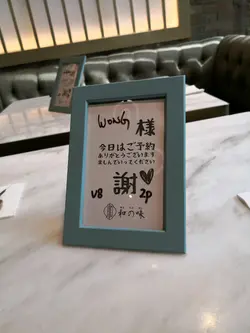 WONG 様
今日はご予約
ありがとうございます
楽しんでいってください
謝
V8 2P
和の味